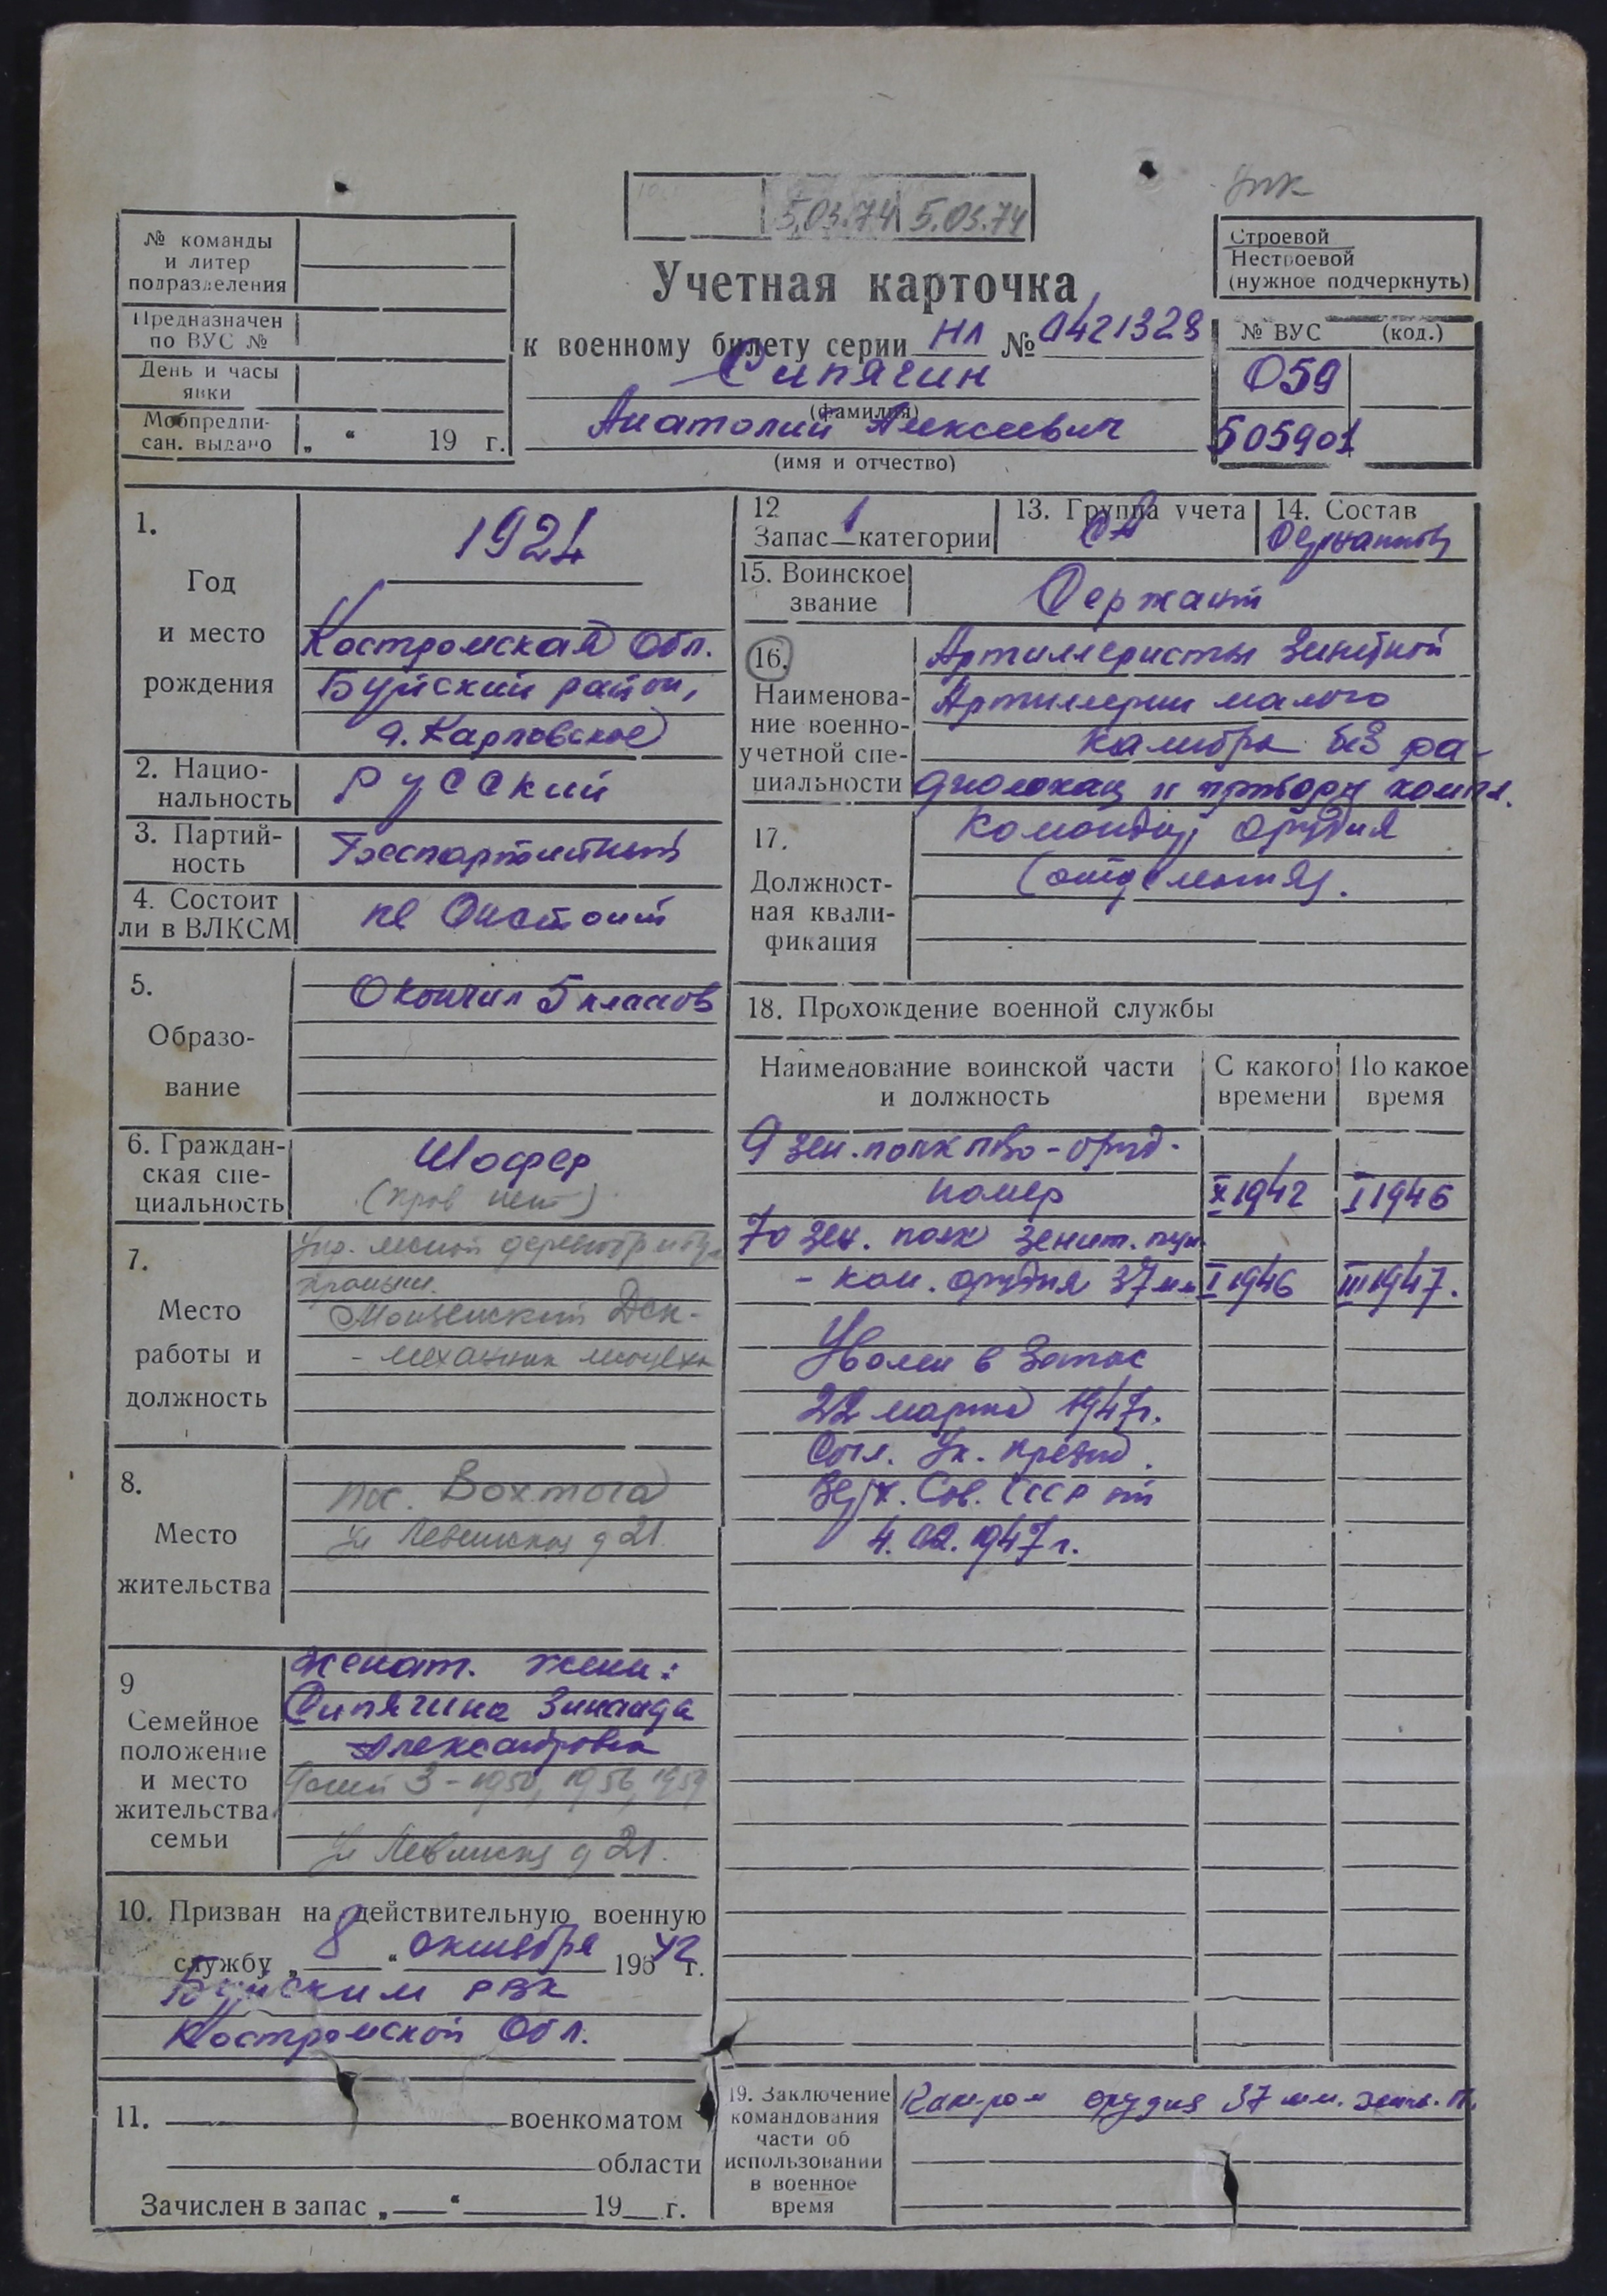 5.03.74 5.03.74
№ команды
и литер
подразделения
Предназначен
по ВУС №
День и часы
явки
Мобпредпи-
сан. выдано „ “ 19 г.
Учетная карточка
к военному билету серии НЛ № 0421328
Сипягин
(фамилия)
Анатолий Алексеевич
(имя и отчество)
Строевой
Нестроевой
(нужное подчеркнуть)
№ ВУС (код.)
059
505901
1.
Год
и место
рождения
1924
Костромская обл.
Буйский район,
д. Карповское
2. Нацио-
нальность
Русский
3. Партий-
ность
Беспартийный
4. Состоит
ли в ВЛКСМ
не состоит
5.
Образо-
вание
Окончил 5 классов
6. Граждан-
ская спе-
циальность
Шофер
(прав нет)
7.
Место
работы и
должность
Монзенский ДОК-
- механик
8.
Место
жительства
пос. Вохтога
ул д 21.
9
Семейное
положение
и место
жительства
семьи
женат. жена:
Сипягина Зинаида
Александровна
Детей 3 - 1950, 1956, 1959
ул д 21.
10. Призван на действительную военную
службу „ 8 “ октября 195 42 г.
Буйским РВК
Костромской обл.
11. военкоматом
области
Зачислен в запас „ “ 19 г.
12
Запас 1 категории
13. Группа учета
СА
14. Состав
Сержантов
15. Воинское
звание
Сержант
16.
Наименова-
ние военно-
учетной спе-
циальности
Артиллеристы зенитной
Артиллерии малого
калибра без ра-
диолокац и приборн компл.
17.
Должност-
ная квали-
фикация
Командир орудия
(отделения).
18. Прохождение военной службы
Наименование воинской части
и должность
С какого
времени
По какое
время
9 зен. полк ПВО - оруд.
номер X 1942 I 1946
70 зен. полк зенит. пуш
- ком. орудия 37 мм I 1946 III 1947.
Уволен в запас
22 марта 1947г.
Согл. Ук. Презид.
Верх. Сов. СССР от
4.02.1947г.
19. Заключение
командования
части об
использовании
в военное
время
орудия 37 мм. зенит. п.